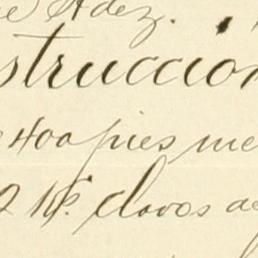 e Hdez.
strucción
e 400 pies me
2 lbs. clavos de